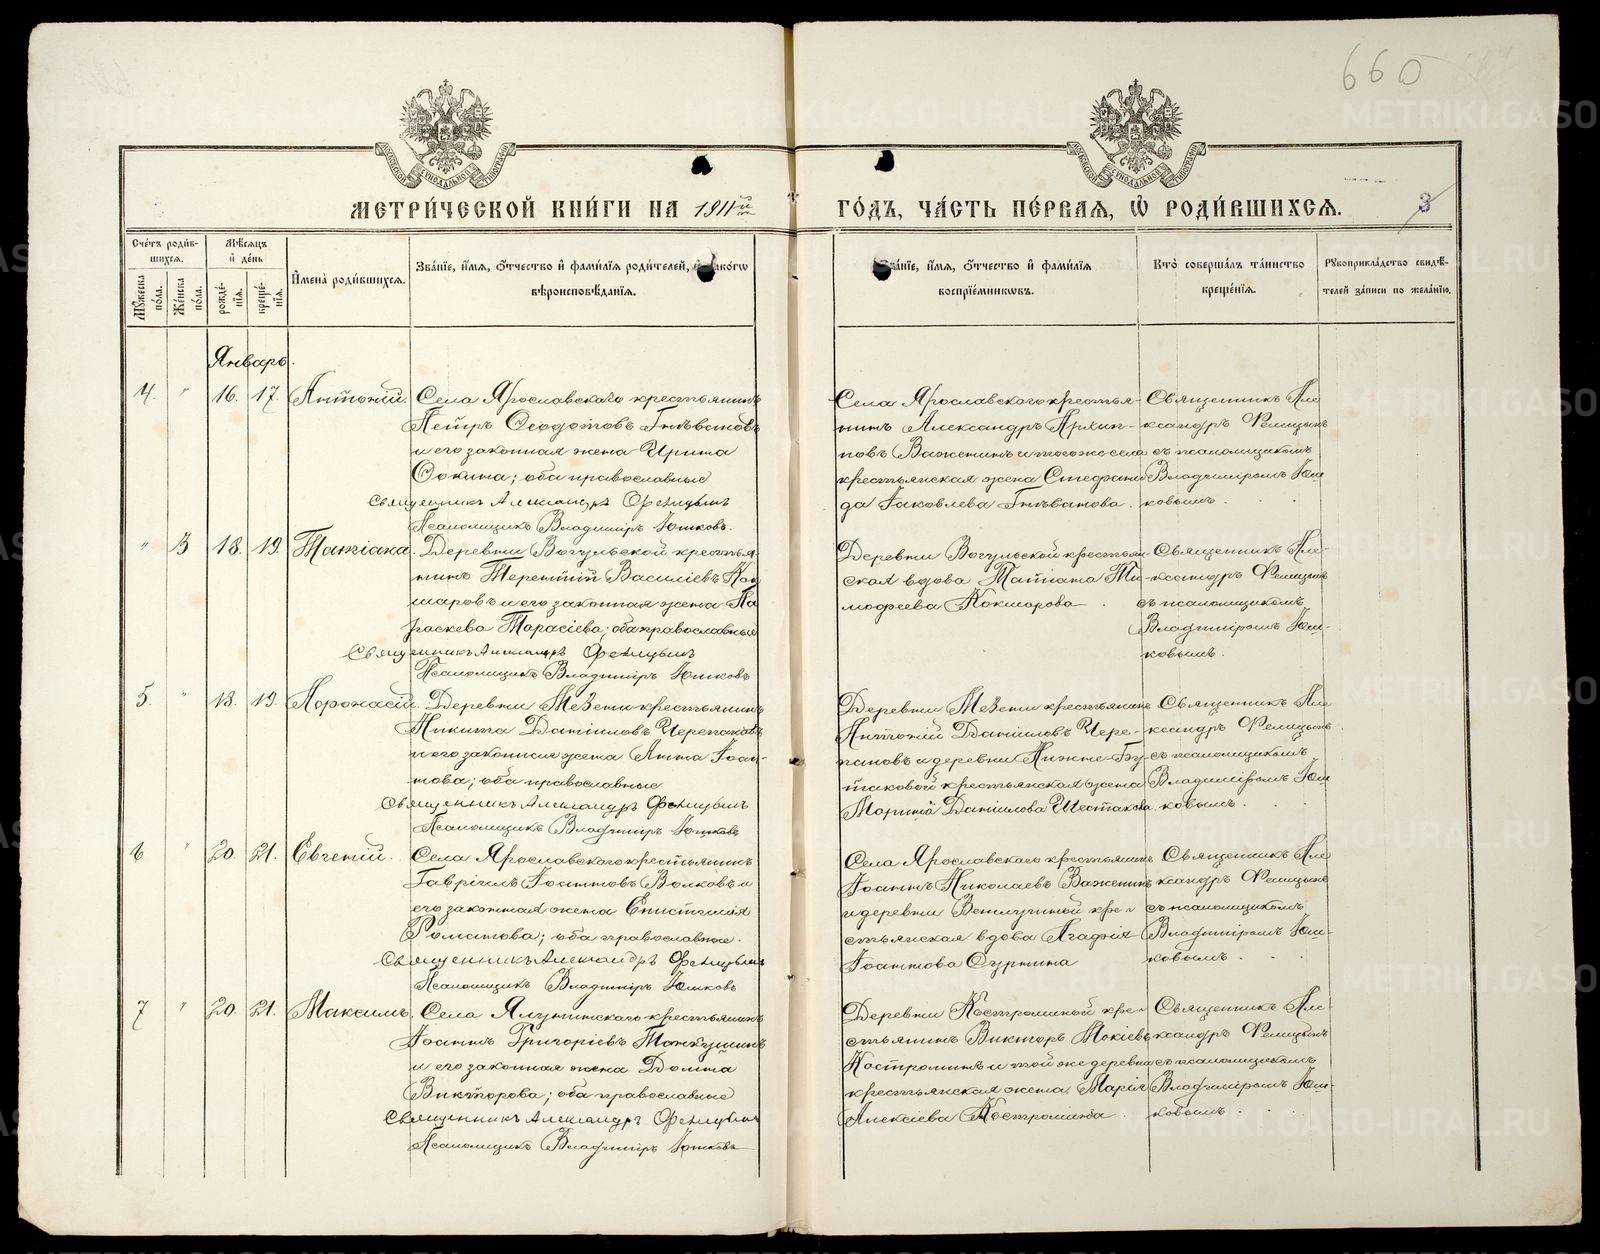 660
МЕТРИ́ЧЕСКОЙ КНИ́ГИ НА 1911й
ГО́ДЪ, ЧА́СТЬ ПЕ́РВАѦ, Ѡ РОДИ́ВШИХСѦ.
3
Сче́тъ роди́в-
шихсѧ.
Мѣ́сѧцъ
и де́нь
Мꙋжеска по́ла.
Же́нска по́ла.
рожде́нїѧ.
креще́нїѧ.
Имена̀ роди́вшихсѧ.
Зва́нїе, и́мѧ, о́тчество и фами́лїѧ роди́телей, и како́гѡ
вѣроисповѣ́данїѧ.
Зва́нїе, и́мѧ, о́тчество и фами́лїѧ
воспрїе́мникѡвъ.
Кто̀ соверша́лъ та́инство
креще́нїѧ.
Рꙋкоприкла́дство свидѣ́-
телей за́писи по жела́нїю.
Январь.
4. " 16. 17. Антоній. Села Ярославскаго крестьянинъ
Петръ Ѳеодотовъ Гнѣвановъ
и его законная жена Ирина
Фокина; оба православные
Священникъ Александръ Фелицынъ
Псаломщикъ Владиміръ Юшковъ.
Села Ярославскаго крестья-
нинъ Александръ Архип-
повъ Важенинъ и тогоже села
крестьянская жена Стефани-
да Іаковлева Гнѣванова.
Священникъ Але
ксандръ Фелицынъ
съ псаломщикомъ
Владиміромъ Юш
ковымъ.
" 3 18. 19. Татіана. Деревни Вогульской крестья-
нинъ Терентій Василіевъ Кок
шаровъ и его законная жена Па
раскева Тарасіева; оба православные
Священникъ Александръ Фелицынъ
Псаломщикъ Владиміръ Юшковъ
Деревни Вогульской крестьян
ская вдова Татіана Ти-
мофеева Кокшарова.
Священникъ Але-
ксандръ Фелицынъ
съ псаломщикомъ
Владиміромъ Юш-
ковымъ.
5. " 18. 19. Деревни Мезени крестьянинъ
Никита Даніиловъ Черепановъ
и его законная жена Анна Іоан-
нова; оба православные
Священникъ Александръ Фелицынъ
Псаломщикъ Владиміръ Юшковъ
Деревни Мезени крестьянинъ
Антоній Даніиловъ Чере-
пановъ и деревни Нижне-Бу-
таковой крестьянская жена
Даніилова Шестакова.
Священникъ Але
ксандръ Фелицынъ
съ псаломщикомъ
Владиміромъ Юш
ковымъ.
6 " 20. 21. Евгеній. Села Ярославскаго крестьянинъ
Гавріилъ Іоанновъ Волковъ и
его законная жена Епистимія
Романова; оба православные.
Священникъ Александръ Фелицынъ
Псаломщикъ Владиміръ Юшковъ
Села Ярославскаго крестьянинъ
Іоаннъ Николаевъ Важенинъ
и деревни Ветлугиной кре-
стьянская вдова Агафія
Іоаннова Сурнина
Священникъ Але
ксандръ Фелицынъ
съ псаломщикомъ
Владиміромъ Юш-
ковымъ.
7 " 20. 21. Максимъ. Села Ялунинскаго крестьянинъ
Іоаннъ Григоріевъ
и его законная жена Домна
Викторова; оба православные
Священникъ Александръ Фелицынъ
Псаломщикъ Владиміръ Юшковъ
Деревни Костроминой кре-
стьянинъ Викторъ Мокіевъ
Костроминъ и той же деревни
крестьянская жена Марія
Алексіева Костромина.
Священникъ Але-
ксандръ Фелицынъ
съ псаломщикомъ
Владиміромъ Юш-
ковымъ.
METRIKI.GASO-URAL.RU